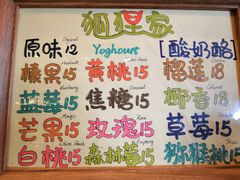 狐狸家
Yoghourt [酸奶酪]
原味12 Original
榛果15 黄桃15 榴莲18
蓝莓15 Blueberry 焦糖15 Caramel 椰香18 Coconut
芒果15 Mango 玫瑰15 Rose 草莓15
白桃15 森林莓15 猕猴桃15